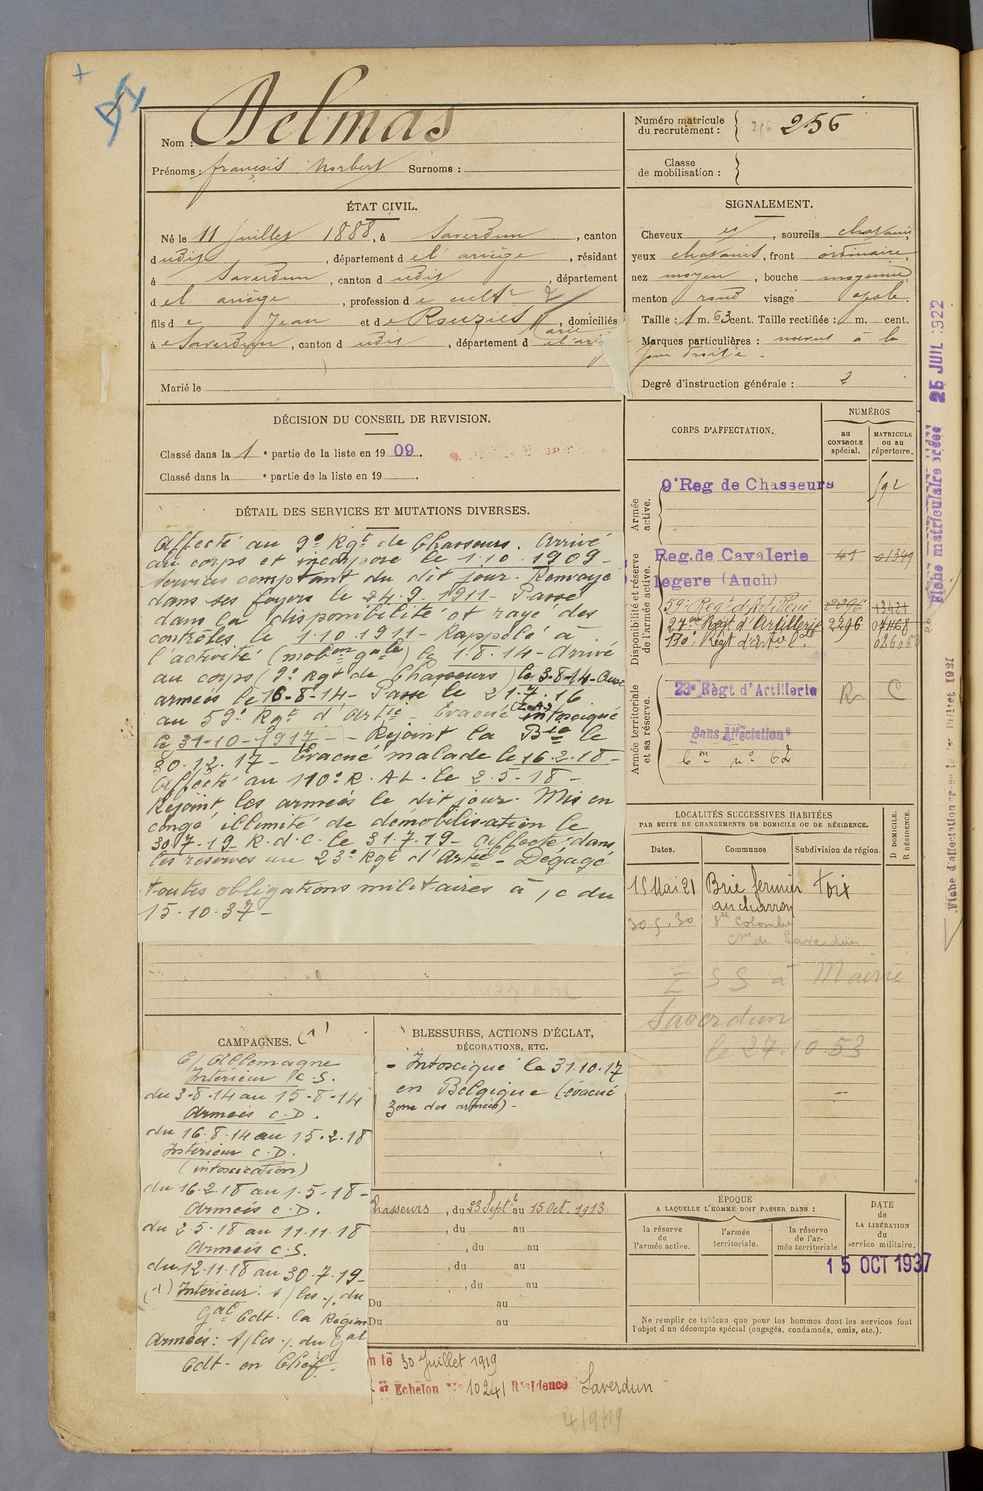 Nom : Delmas
Prénoms : françois Norbert Surnoms :
Numéro matricule
du recrutement : 256
Classe
de mobilisation :
ÉTAT CIVIL.
Né le 11 juillet 1888, à Saverdun, canton
dudit, département de l'ariège, résidant
à Saverdun, canton dudit, département
de l'ariège, profession de cultr
fils de Jean et de Rouziès Marie, domiciliés
à Saverdun, canton dudit, département d
Marié le
SIGNALEMENT.
Cheveux et, sourcils chatains,
yeux chatains, front ordinaire
nez moyen, bouche moyenne
menton rond visage ovale.
Taille : 1 m. 63 cent. Taille rectifiée : 1 m. cent.
Marques particulières : noevus à la
joue droite.
Degré d'instruction générale : 2
DÉCISION DU CONSEIL DE REVISION.
Classé dans la 1e partie de la liste en 1909.
Classé dans la e partie de la liste en 19 .
DÉTAIL DES SERVICES ET MUTATIONS DIVERSES.
Affecté au 9e Rgt de Chasseurs. Arrivé
au corps et incorporé le 1.10.1909-
Services comptant du dit jour- Renvoyé
dans ses foyers le 24.9.1911- Passé
dans la disponibilité et rayé des
contrôles le 1.10.1911- Rappelé à
l'activité (mobon gale) le 1.8.14- Arrivé
au corps (9e Rgt de Chasseurs) le 3-8-14- Aux
armées le 16-8-14- Passé le 21.7.16
au 59e Rgt d'Artie- Evacué (Z.A.) intoxiqué
le 31-10-1917- Rejoint la Bie le
30.12.17- Evacué malade le 16.2.18-
Affecté au 110e R.A.L. le 2.5.18-
Rejoint les armées le dit jour. Mis en
congé illimité de démobilisation le
30.7.19 R.d.C. le 31.7.19- Affecté dans
les réserves au 23e Rgt d'Artie- Dégagé
toutes obligations militaires à /c du
15.10.37-
CORPS D'AFFECTATION.
NUMÉROS
au
CONTROLE
spécial.
MATRICULE
ou au
répertoire.
Armée
active.
9e Reg de Chasseurs 592
Disponibilité et réserve
de l'armée active.
Reg. de Cavalerie 41 01349
légere (Auch)
59e Regt d'Artillerie 2296 13421
27eme Regt d'Artillerie 2296
110e Régt d'Artie L.
Armée territoriale
et sa réserve.
23e Règt d'Artillerie R C
Sans Affectation
Cm no 62
Fiche matriculaire créée 25 JUIL 1922
LOCALITÉS SUCCESSIVES HABITÉES
PAR SUITE DE CHANGEMENTS DE DOMICILE OU DE RÉSIDENCE.
Dates. Communes Subdivision de région. D DOMICILE. R RÉSIDENCE.
15 Mai 21 Brie fermier Foix
au charron
30.5.30 Ste Colombe
cne de Saverdun
Mairie
Saverdun
le 27.10 53
CAMPAGNES. (1)
C/ Allemagne
Intérieur C.S.
du 3-8-14 au 15-8-14
Armées C.D.
du 16.8.14 au 15.2.18
Intérieur C.D.
(intoxication)
du 16.2.18 au 1.5-18-
Armées C.D.
du 2.5.18 au 11.11.18
Armées C.S.
du 12.11.18 au 30.7.19-
(1) Intérieur : s/les ./. du
Gal Cdt. la Région
Armées : s/les ./. du Gal
Cdt. en Chef.
BLESSURES, ACTIONS D'ÉCLAT,
DÉCORATIONS, ETC.
- Intoxiqué le 31.10.17
en Belgique (évacué
zone des armées)-
Chasseurs, du 23 Sept au 15 Oct. 1913
, du au
, du au
, du au
, du au
Du au
Du au
ÉPOQUE
A LAQUELLE L'HOMME DOIT PASSER DANS :
la réserve
de
l'armée active.
l'armée
territoriale.
la réserve
de l'ar-
mée territoriale.
DATE
de
LA LIBÉRATION
du
service militaire.
15 OCT 1937
Ne remplir ce tableau que pour les hommes dont les services font
l'objet d'un décompte spécial (engagés, condamnés, omis, etc.).
le 30 Juillet 1919
Echelon No 10241 Résidence Saverdun
4/9/19